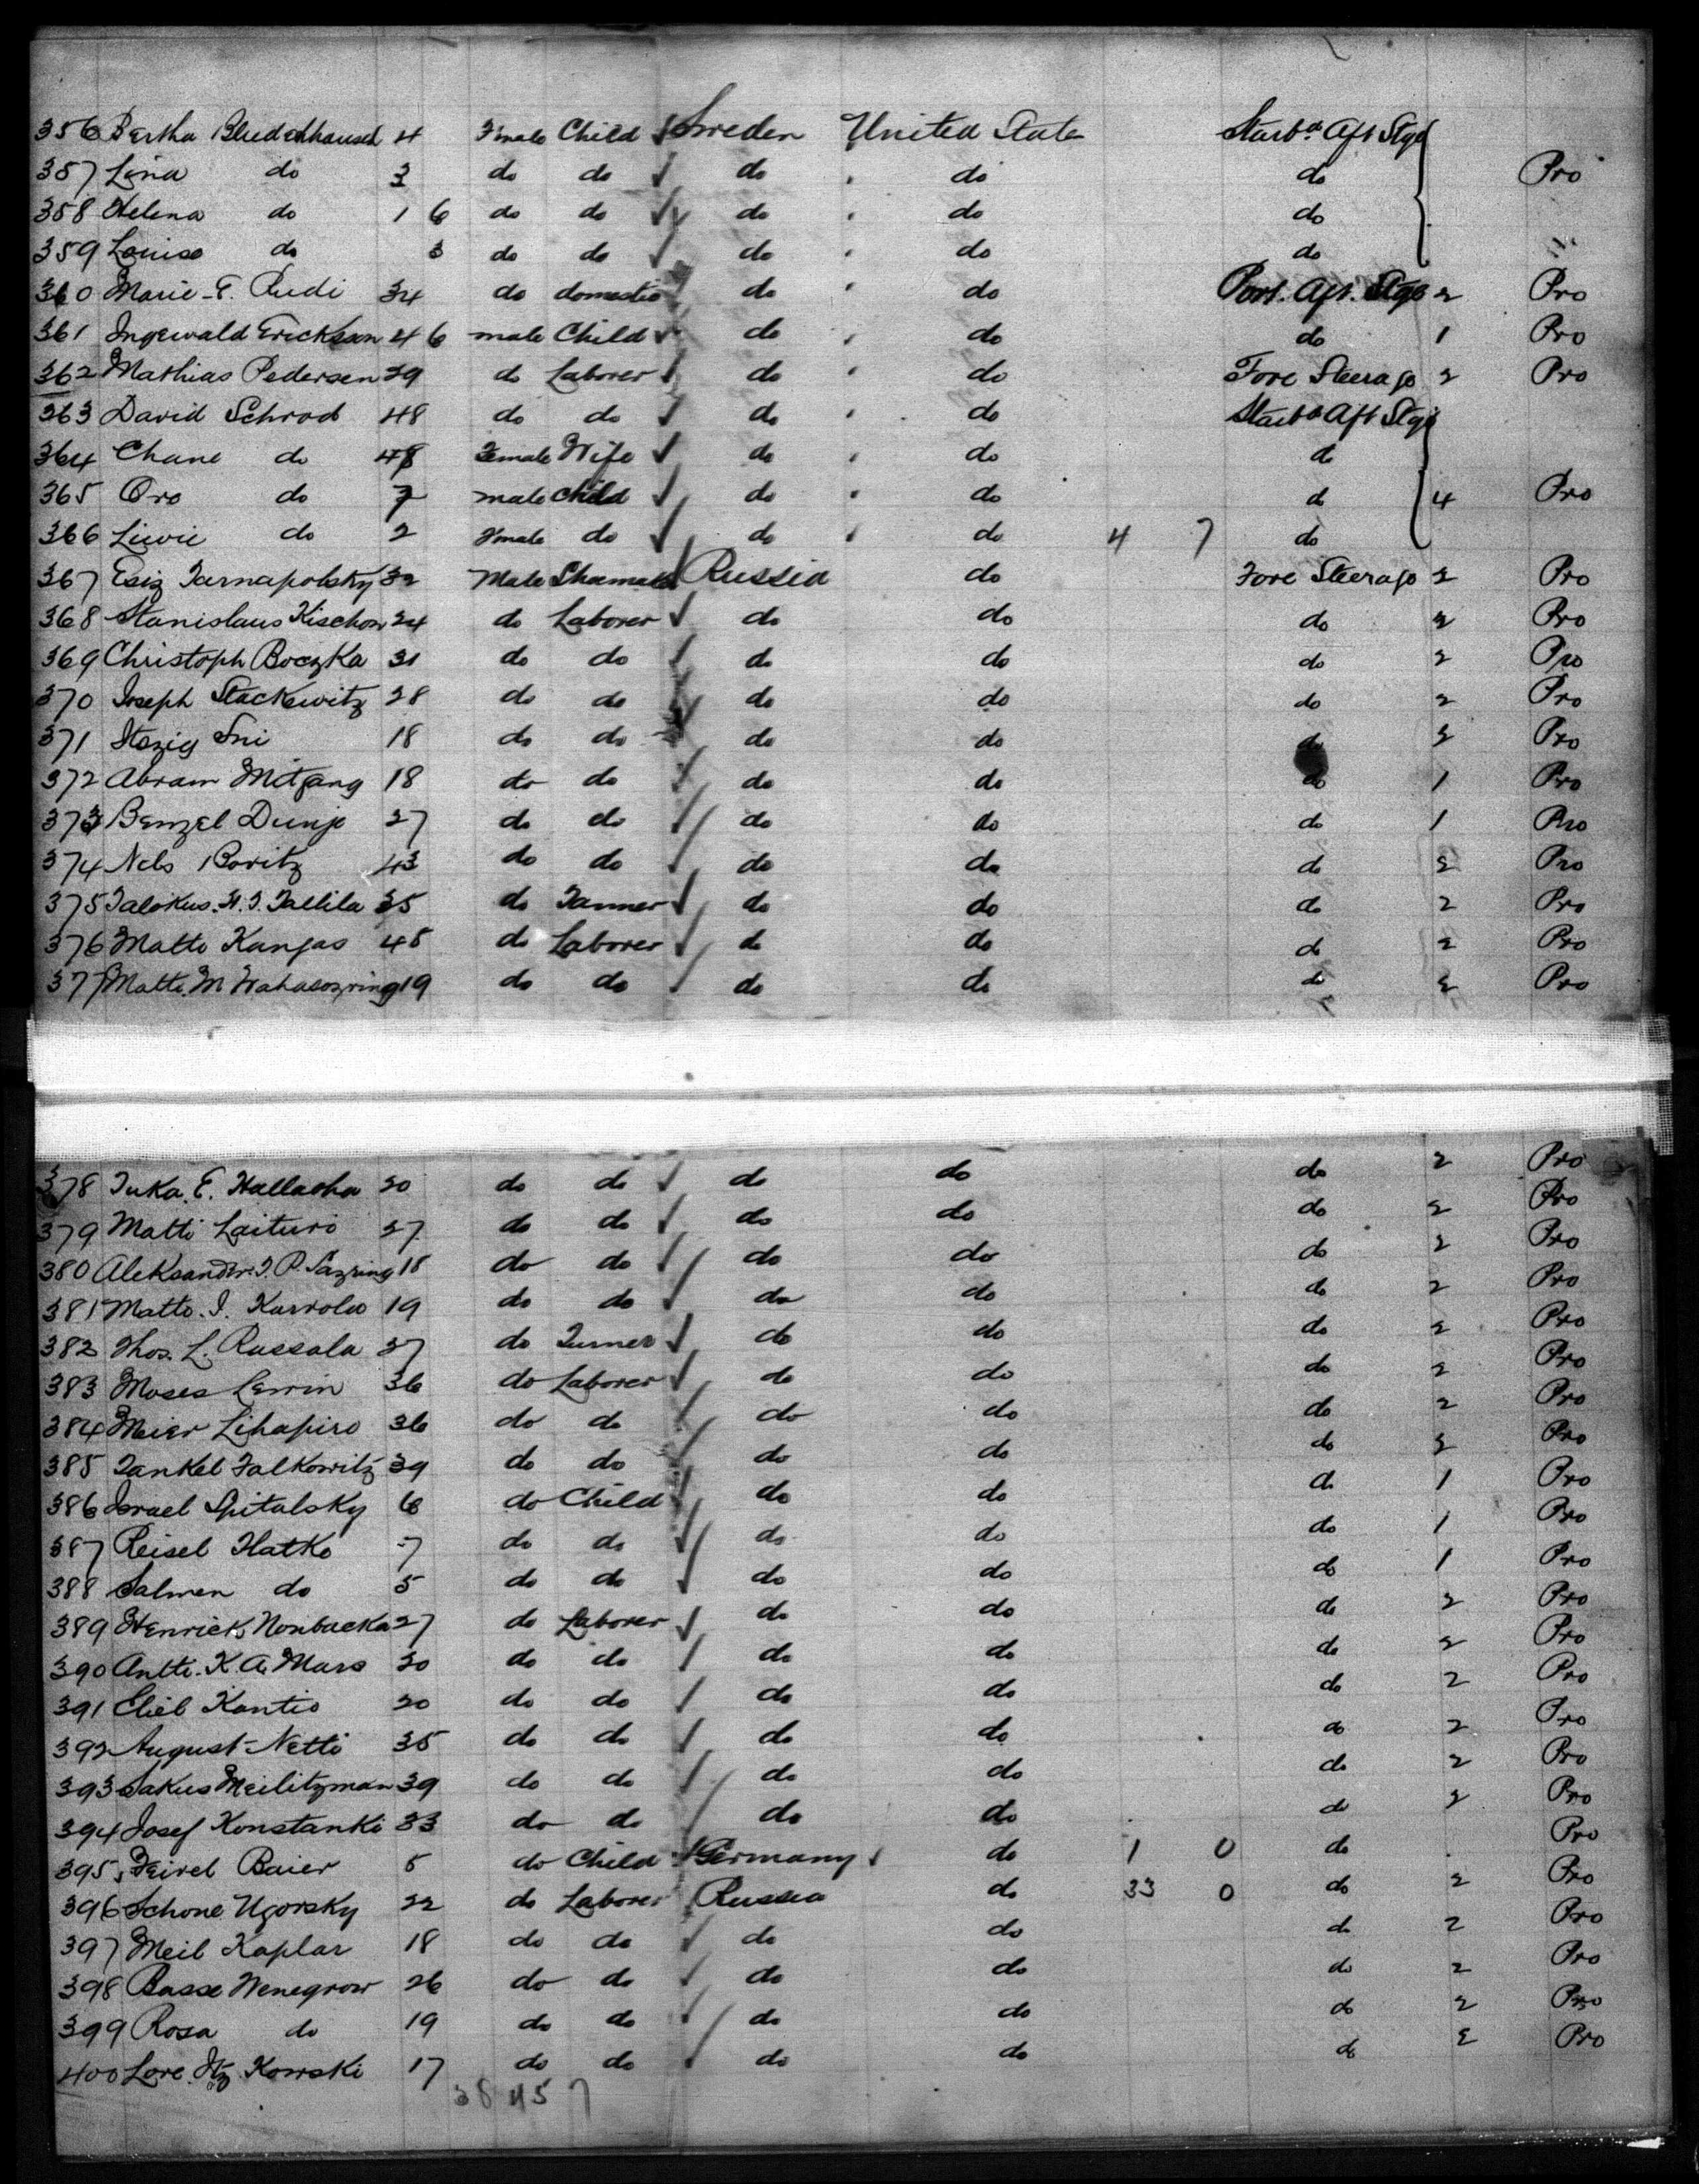 356 Bertha 4 Female Child Sweden United State Starbd Aft Stge
357 Lina do 3 do do do do do Pro
358 Helena do 1 6 do do do do do
359 Louise do 3 do do do do do
360 Marie E. Rudi 34 do domestic do do Port. Aft. Stge 2 Pro
361 Ingewald Erickson 4 6 male Child do do do 1 Pro
362 Mathias Pedersen 29 do Laborer do do Fore Steerage 2 Pro
363 David Schrod 48 do do do do Starbd Aft Stge
364 Chane do 48 Female Wife do do do
365 Oro do 7 male Child do do do 4 Pro
366 Liwie do 2 Female do do do 4 7 do
367 Esiz Tarnapolsky 32 Male Shoemaker Russia do Fore Steerage 2 Pro
368 Stanislaus Kischon 24 do Laborer do do do 2 Pro
369 Christoph Boczka 31 do do do do do 2 Pro
370 Joseph Stackewitz 28 do do do do do 2 Pro
371 18 do do do do do 2 Pro
372 Abram Mitgang 18 do do do do do 1 Pro
373 Benzel Dunje 27 do do do do do 1 Pro
374 Nels Boritz 43 do do do do do 2 Pro
375 35 do Tanner do do do 2 Pro
376 Matts Kangas 45 do Laborer do do do 2 Pro
377 Matts. M 19 do do do do do 2 Pro
378 E. 20 do do do do do 2 Pro
379 Matti Laituri 27 do do do do do 2 Pro
380 Aleksander 18 do do do do do 2 Pro
381 Matts. I. Karvola 19 do do do do do 2 Pro
382 Thos. L. Russala 37 do Turner do do do 2 Pro
383 Moses Lewin 36 do Laborer do do do 2 Pro
384 Meier 36 do do do do do 2 Pro
385 Jankel Falkowitz 39 do do do do do 2 Pro
386 Israel Spitalsky 6 do Child do do do 1 Pro
387 Reisel Hatko 7 do do do do do 1 Pro
388 Salmen do 5 do do do do do 1 Pro
389 Henrick Nonbacka 27 do Laborer do do do 2 Pro
390 Antti. K. A. Mars 30 do do do do do 2 Pro
391 Elieb Kantio 20 do do do do do 2 Pro
392 August Netti 35 do do do do do 2 Pro
393 Sakus Meilitzman 39 do do do do do 2 Pro
394 Josef Konstanki 33 do do do do do 2 Pro
395 Feivel Baier 5 do Child Germany do 1 0 do Pro
396 Schone Ugorsky 22 do Laborer Russia do 33 0 do 2 Pro
397 Meib Kaplar 18 do do do do do 2 Pro
398 Basse Wenegrow 26 do do do do do 2 Pro
399 Rosa do 19 do do do do do 2 Pro
400 Lore Kowski 17 do do do do do 2 Pro